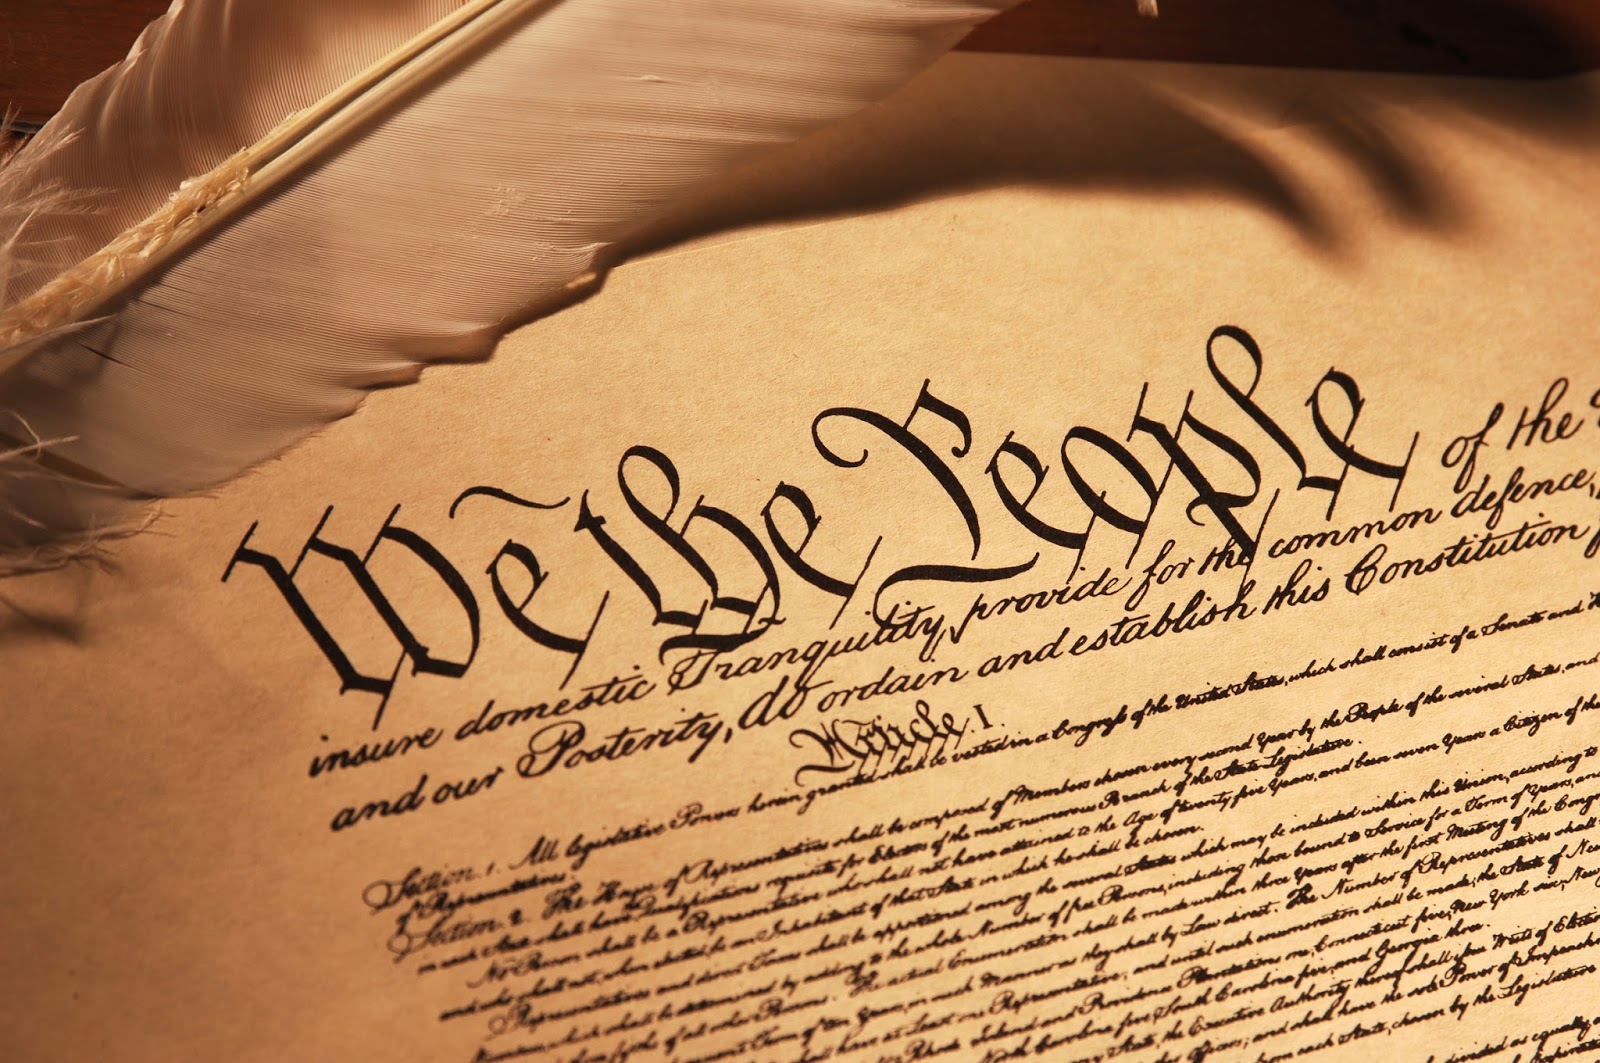 We the People of the
insure domestic Tranquility, provide for the common defence,
and our Posterity, do ordain and establish this Constitution
Article. I.
Section. 1. All legislative Powers herein granted shall be vested in a Congress of the United States, which shall consist of a Senate and
of Representatives.
Section. 2. The House of Representatives shall be composed of Members chosen every second Year by the People of the several States, and
in each State shall have Qualifications requisite for Electors of the most numerous Branch of the State Legislature.
No Person shall be a Representative who shall not have attained to the Age of twenty five Years, and been seven Years a Citizen of the
and who shall not, when elected, be an Inhabitant of that State in which he shall be chosen.
Representatives and direct Taxes shall be apportioned among the several States which may be included within this Union, according to
which shall be determined by adding to the whole Number of free Persons, including those bound to Service for a Term of Years, and
of all other Persons. The actual Enumeration shall be made within three Years after the first Meeting of the
Term of ten Years, in such Manner as they shall by Law direct. The Number of Representatives shall
shall have at Least one Representative; and until such enumeration shall be made, the State of New
Rhode Island and Providence Plantations one, Connecticut five, New York six, New
North Carolina five, South Carolina five, and Georgia three.
State, the Executive Authority thereof shall issue Writs of Election
other Officers; and shall have the sole Power of
from each State, chosen by the Legislature
divided as equally as